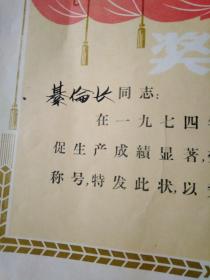 奖
綦倫长同志：
在一九七四
促生产成績显著，
称号，特发此状，以